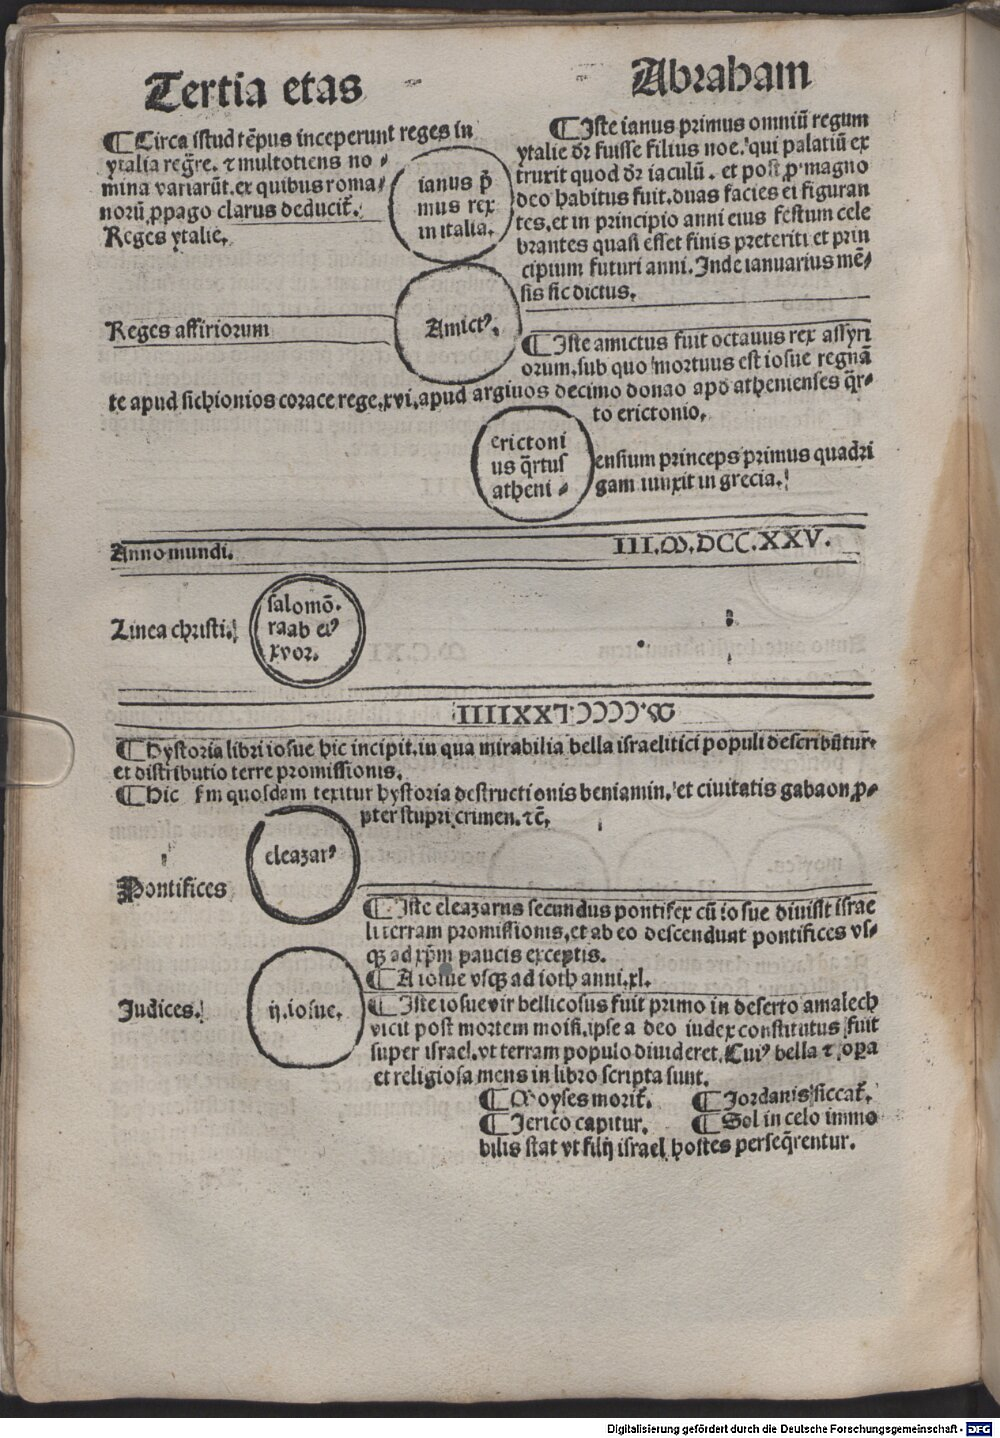 Tertia etas
Abraham
¶Circa istud tēpus inceperunt reges in
ytalia regr̄e. ⁊ multotiens no⸗
mina variarūt. ex quibus roma⸗
norū ꝓpago clarus deducit̄.
Reges ytalie.
ianus p̄
mus rex
in italia.
¶Iste ianus primus omniū regum
ytalie dr̄ fuisse filius noe. qui palatiū ex
truxit quod dr̄ iaculū. et post ꝓ magno
deo habitus fuit. duas facies ei figuran
tes. et in principio anni eius festum cele
brantes quasi esset finis preteriti et prin
cipium futuri anni. Inde ianuarius mē⸗
sis sic dictus.
Reges assiriorum
Amictꝰ.
¶Iste amictus fuit octauus rex assyri
orum. sub quo mortuus est iosue regnā
te apud sichionios corace rege. xvi. apud argiuos decimo donao apd athenienses q̄r⸗
to erictonio.
erictoni
us q̄rtus
atheni⸗
ensium princeps primus quadri
gam iunxit in grecia.
Anno mundi.
III.M.DCC.XXV.
Linea christi.
salomō.
raab eiꝰ
xvor.
M.CCCC.LXXIIII
¶Hystoria libri iosue hic incipit. in qua mirabilia bella israelitici populi describūtur
et distributio terre promissionis.
¶Hic sm quosdam texitur hystoria destructionis beniamin. et ciuitatis gabaon ꝓ⸗
pter stupri crimen. ⁊c̄.
Pontifices
eleazarꝰ
¶Iste eleazarus secundus pontifex cū iosue diuisit israe
li terram promissionis. et ab eo descendunt pontifices vs⸗
qꝫ ad xp̄m paucis exceptis.
¶A iosue vsqꝫ ad ioth anni. xl.
Judices.
ij. iosue.
¶Iste iosue vir bellicosus fuit primo in deserto amalech
vicit post mortem moisi. ipse a deo iudex constitutus fuit
super israel. vt terram populo diuideret. Cuiꝰ bella ⁊ oꝑa
et religiosa mens in libro scripta sunt.
¶Moyses morit̄. ¶Jordanis siccat̄.
¶Jerico capitur. ¶Sol in celo immo
bilis stat vt filij israel hostes perseq̄rentur.
Digitalisierung gefördert durch die Deutsche Forschungsgemeinschaft - DFG